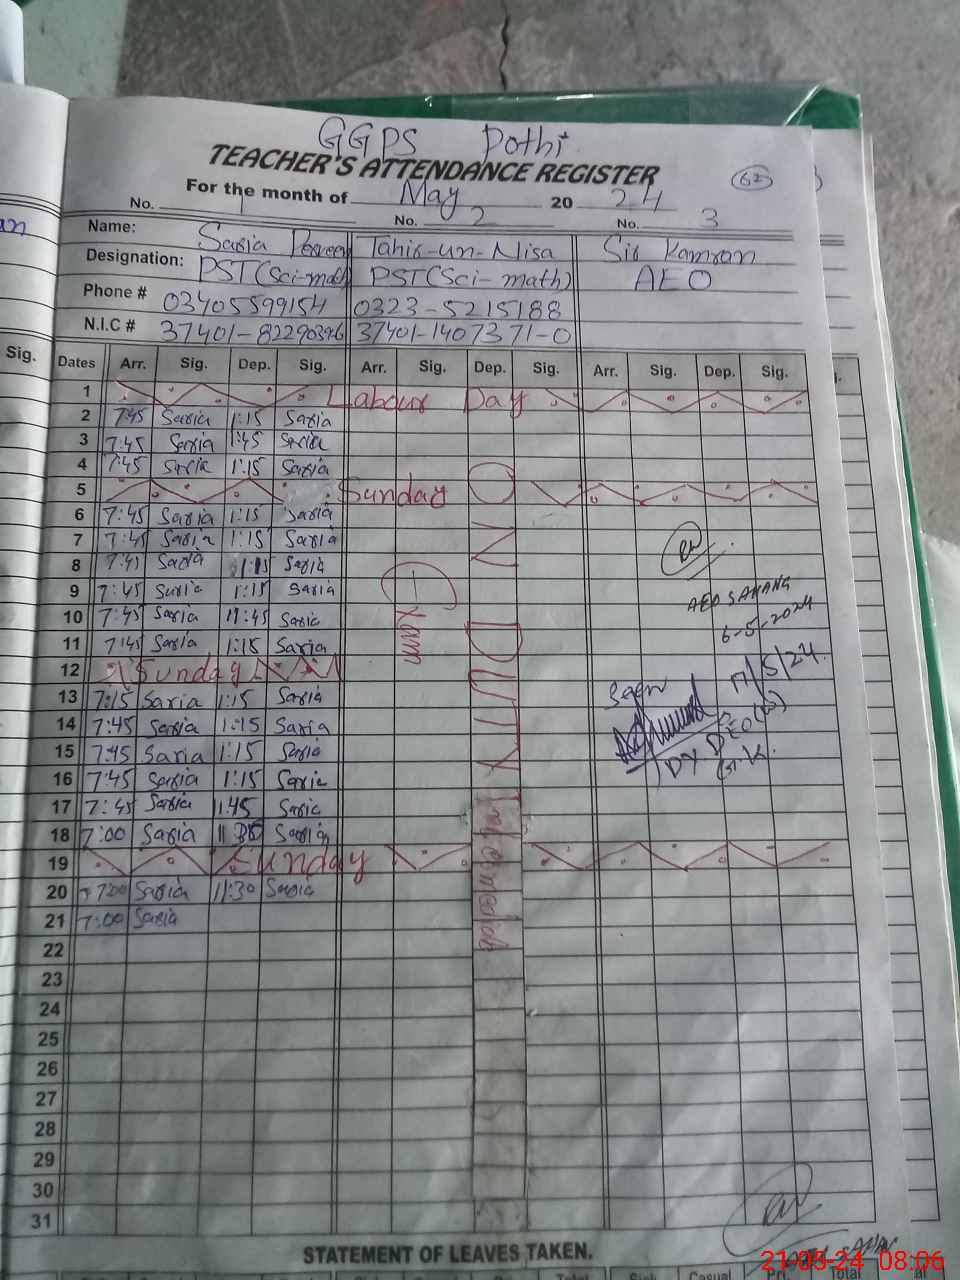 GGPS Pothi
TEACHER'S ATTENDANCE REGISTER
62
For the month of May 20 24
No. 1 No. 2 No. 3
Name: Saria Perveen Tahir-un-Nisa Sir Kamran
Designation: PST(Sci-math) PST(Sci-math) AEO
Phone # 03405599154 0323-5215188
N.I.C # 37401-1407371-0
Sig. Dates Arr. Sig. Dep. Sig. Arr. Sig. Dep. Sig. Arr. Sig. Dep. Sig.
1 Labour Day
2 7:45 Saria 1:15 Saria
3 7:45 Saria 1:45 Saria
4 7:45 Saria 1:15 Saria
5 Sunday
6 7:45 Saria 1:15 Saria
7 7:45 Saria 1:15 Saria
8 7:45 Saria 1:15 Saria
9 7:45 Saria 1:15 Saria
10 7:45 Saria 11:45 Saria
11 7:45 Saria 1:15 Saria
12 Sunday
13 7:15 Saria 1:15 Saria
14 7:45 Saria 1:15 Saria
15 7:45 Saria 1:15 Saria
16 7:45 Saria 1:15 Saria
17 7:45 Saria 11:45 Saria
18 7:00 Saria 11:30 Saria
19 Sunday
20 7:00 Saria 11:30 Saria
21 7:00 Saria
22
23
24
25
26
27
28
29
30
31
ON DUTY
Exam
AEO SAHANG
6-5-2024
Seen
17/5/24.
DY. DEO (W)
G.K.
STATEMENT OF LEAVES TAKEN.
Total Sig. Casual Total
21-05-24 08:06